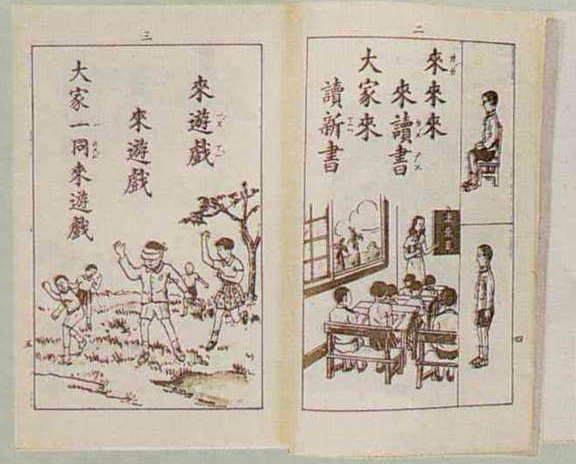 二
來來來
來讀書
大家來
讀新書
四
三
來遊戲
來遊戲
大家一同來遊戲
五